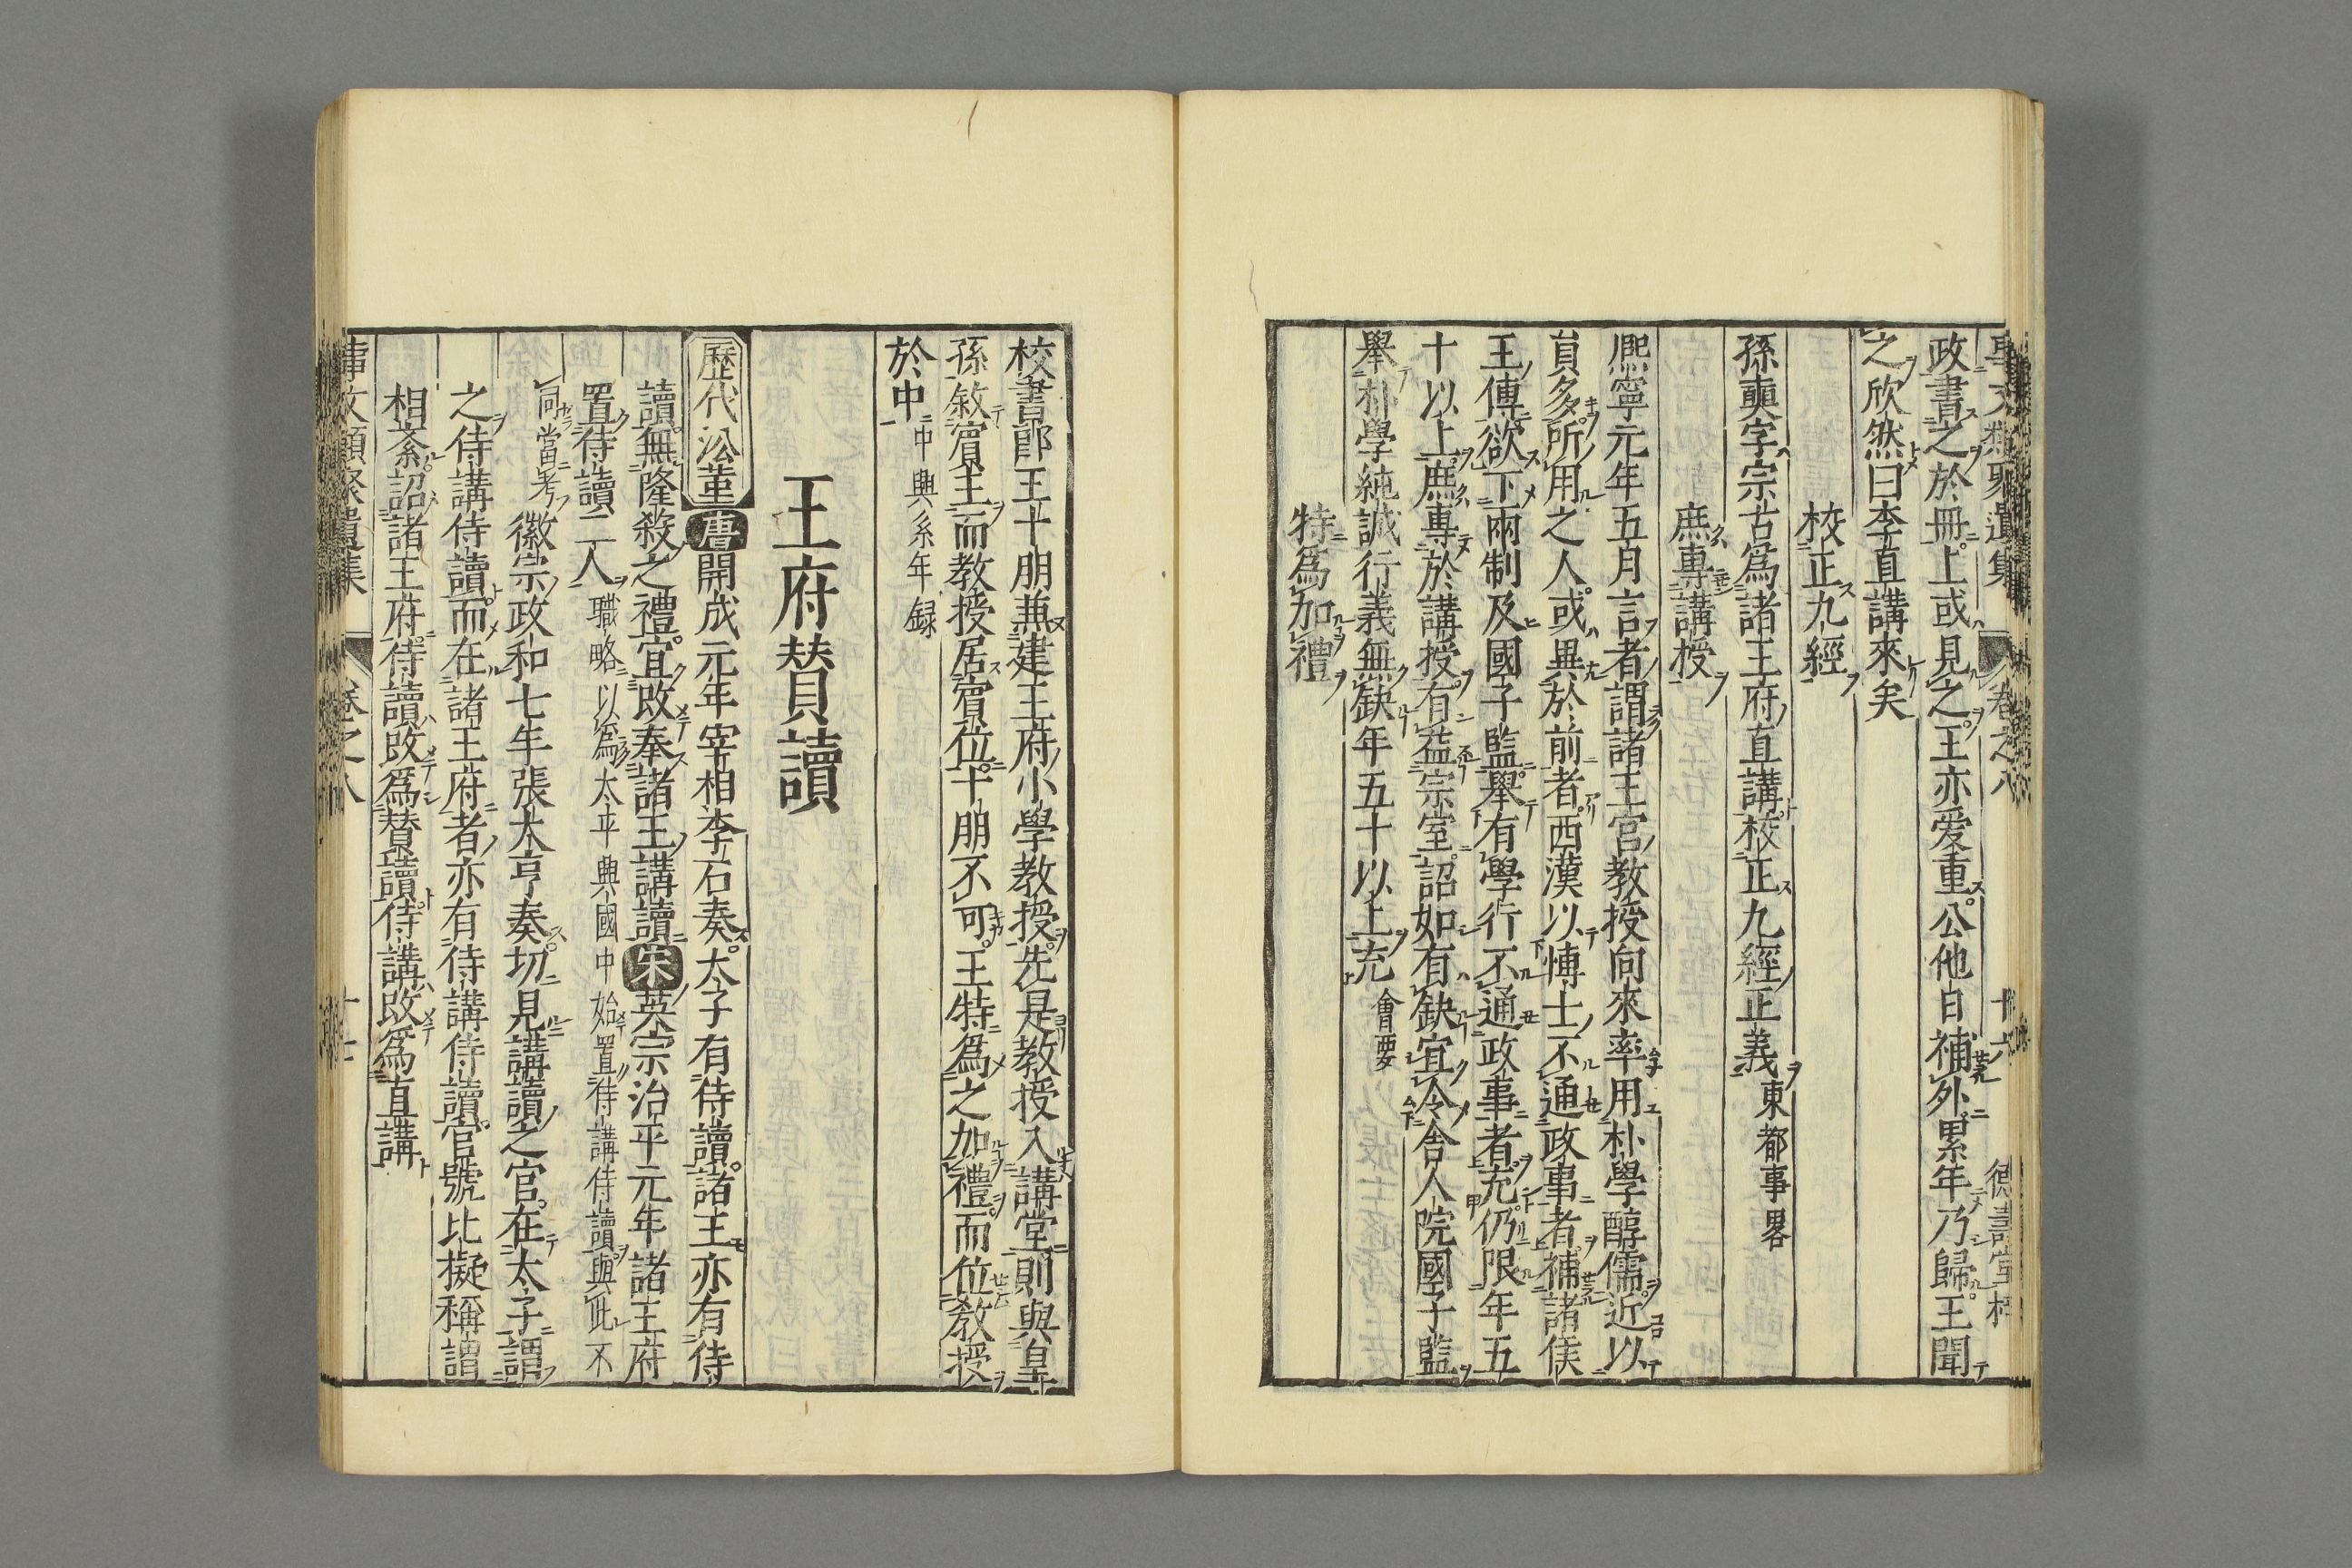 政書之於冊上或見之王亦爱重公他日補外累年乃歸王聞
之欣然曰李直講來矣
校正九經
孫奭字宗古爲諸王府直講校正九經正義東都事畧
庶專講授
熈寧元年五月言者謂諸王宮教授向來率用朴學醇儒近以
員多所用之人或異於前者西漢以博士不通政事者補諸侯
王傅欲下兩制及國子監舉有學行不通政事者充仍限年五
十以上庶專於講授有益宗室詔如有缺宜令舎人院國子監
舉朴學純誠行義無缺年五十以上充會要
特爲加禮
校書郎王十朋兼建王府小學教授先是教授入講堂則與皇
孫敘賓主而教授居賓位十朋不可王特爲之加禮而位教授
於中中興系年録
王府賛讀
歷代沿革唐開成元年宰相李石奏太子有侍讀諸王亦有侍
讀無隆殺之禮宜改奉諸王講讀宋英宗治平元年諸王府
置侍讀二人職略以爲太平興國中始置侍講侍讀與此不
同當考徽宗政和七年張大亨奏切見講讀之官在太子謂
之侍講侍讀而在諸王府者亦有侍講侍讀官號比擬稱謂
相紊詔諸王府侍讀改爲賛讀侍講改爲直講
事文類聚遺集 卷之八